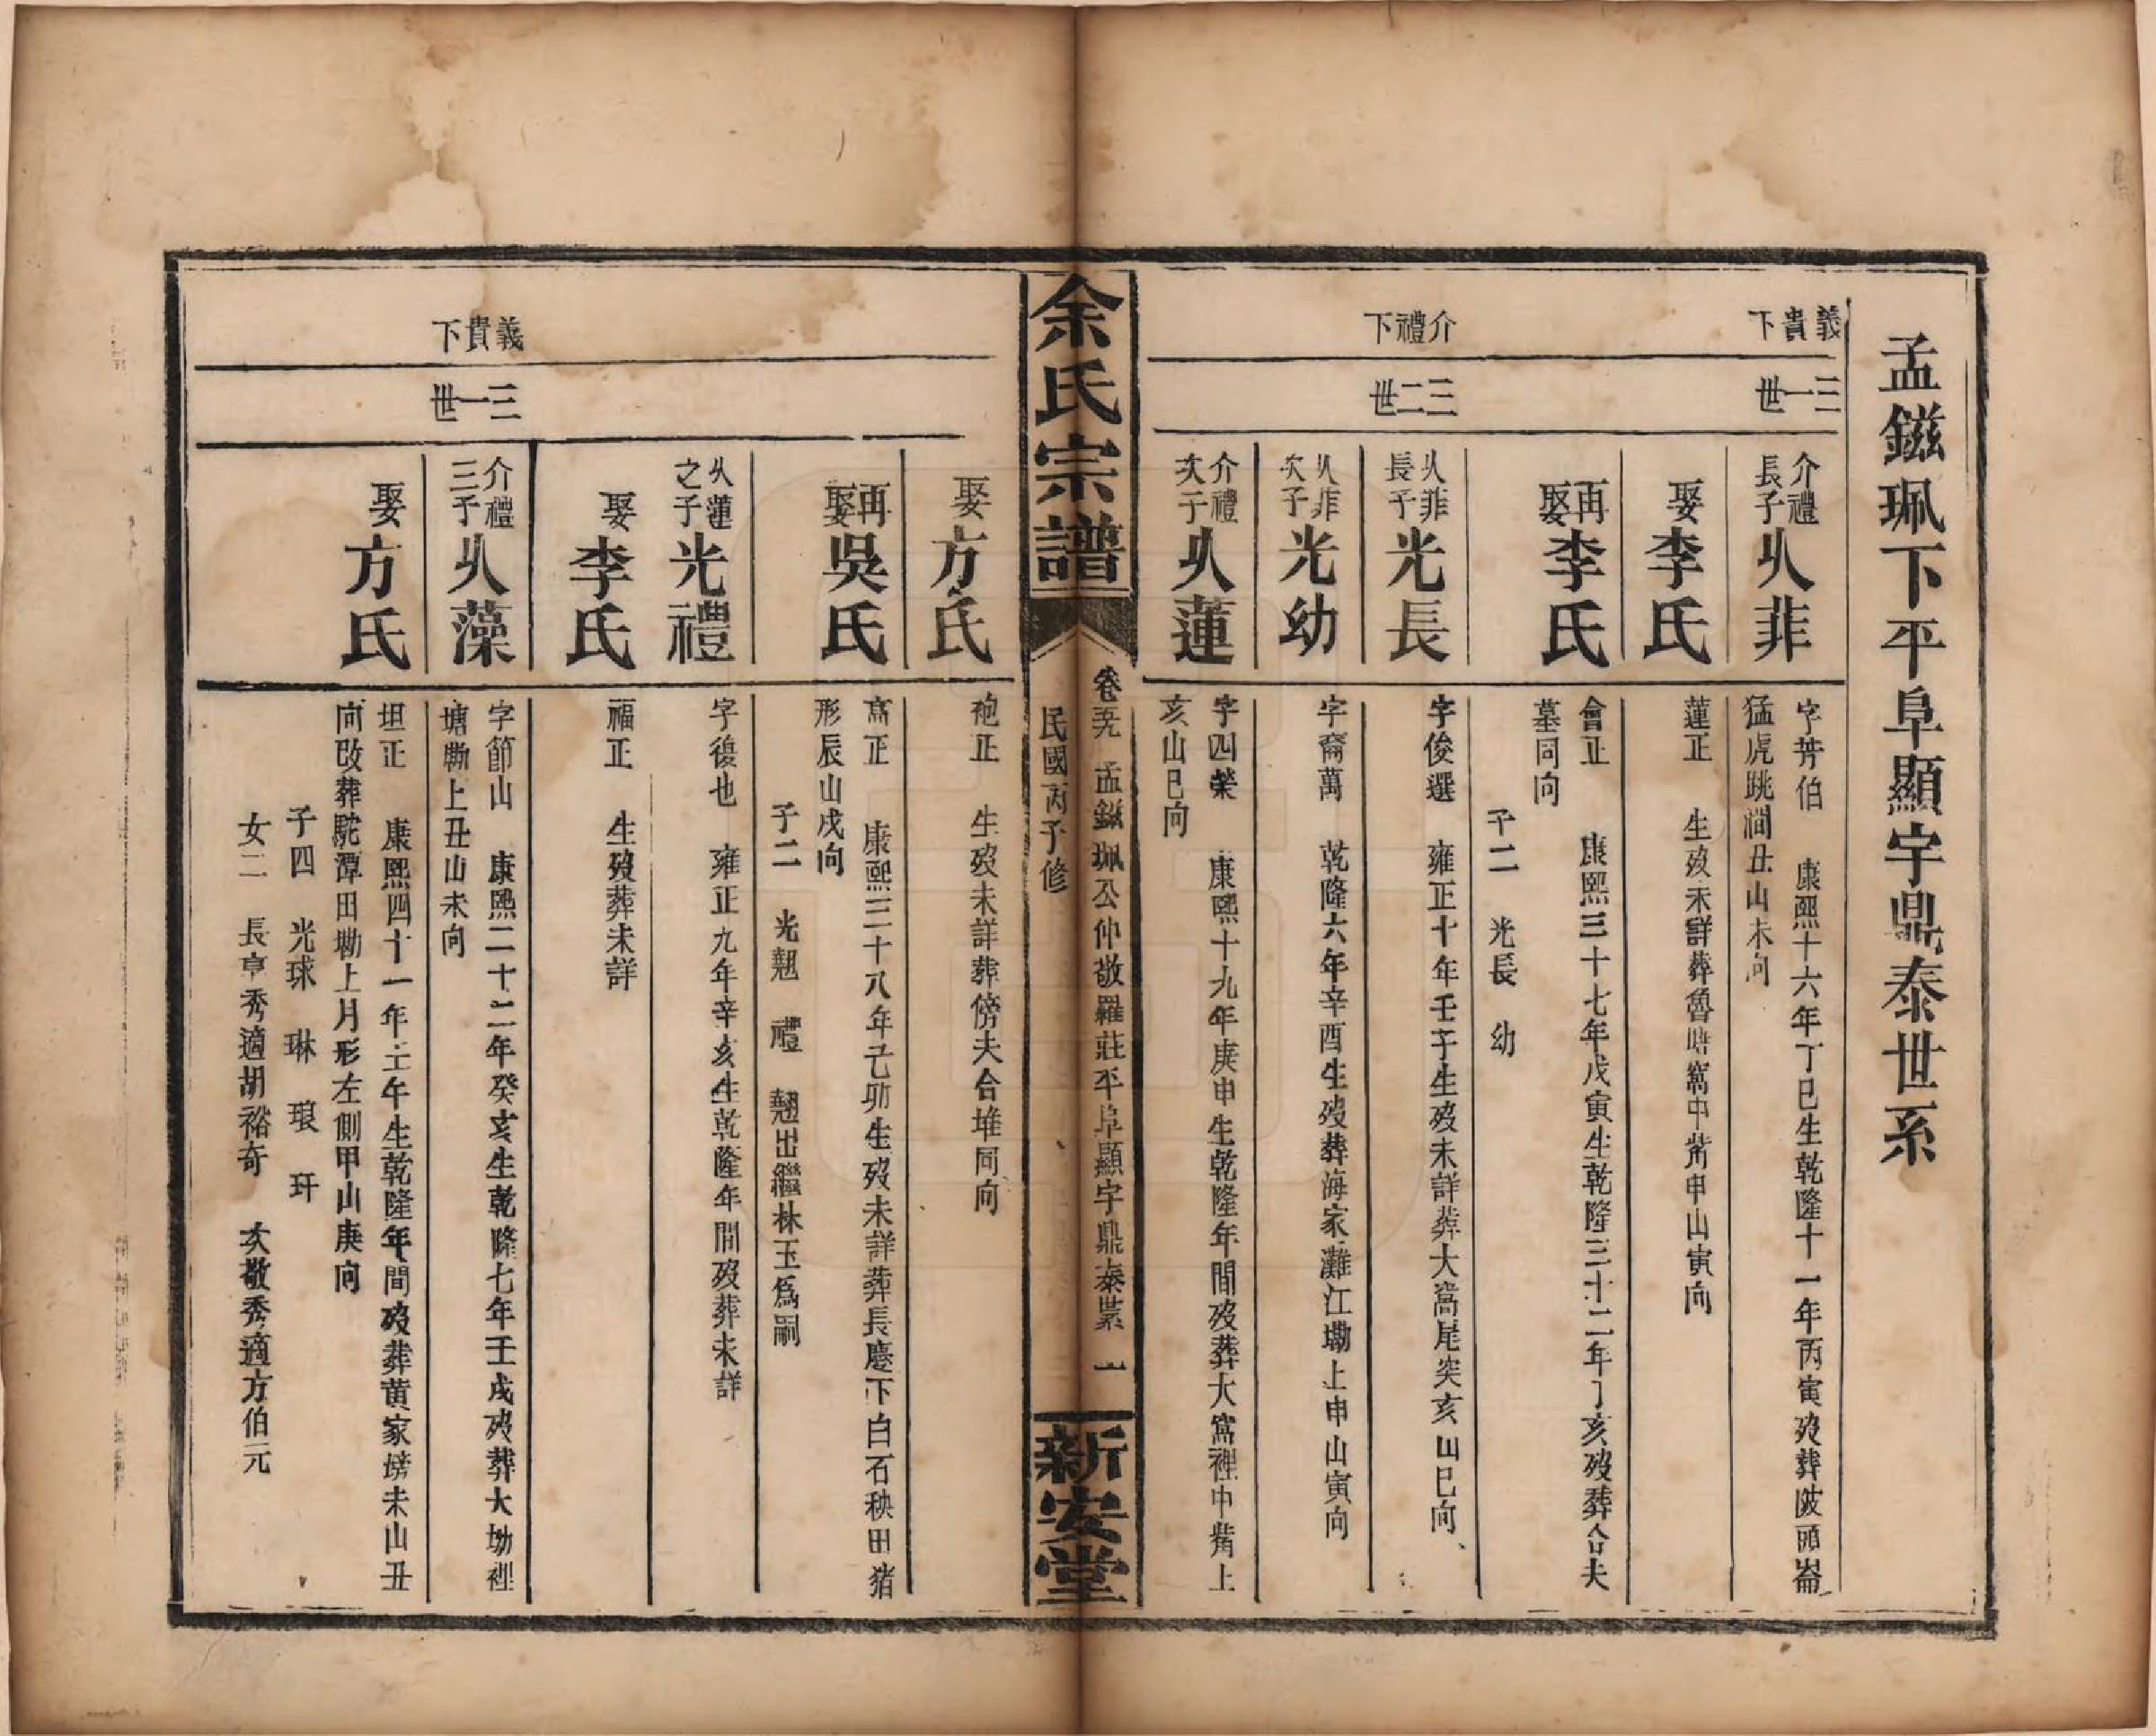 孟鎡珮下平阜顯宇鼎泰世系
義貴下
三一世
介禮長子
㳄非
字芳伯 康熙十六年丁巳生乾隆十一年丙寅歿葬陂頭崙
猛虎跳澗丑山未向
娶李氏
蓮正 生歿未詳葬魯塘窩中觜申山寅向
再娶李氏
會正 康熙三十七年戊寅生乾隆三十二年丁亥歿葬合夫
墓同向
子二 光長 幼
介禮下
三二世
㳄非長子
光長
字俊選 雍正十年壬子生歿未詳葬大窩尾突亥山巳向
㳄非次子
光幼
字裔萬 乾隆六年辛酉生歿葬海家灘江墈上申山寅向
介禮次子
㳄蓮
字四榮 康熙十九年庚申生乾隆年間歿葬大窩裡中觜上
亥山巳向
余氏宗譜
卷五 孟鎡珮公仲敬羅莊平阜顯宇鼎泰系 一
民國丙子修
新安堂
娶方氏
袍正 生歿未詳葬傍夫合堆同向
再娶吳氏
高正 康熙三十八年己卯生歿未詳葬長慶下白石秧田猪
形辰山戌向
子二 光翹 禮 翹出繼林玉爲嗣
㳄蓮之子
光禮
字復也 雍正九年辛亥生乾隆年間歿葬未詳
娶李氏
福正 生歿葬未詳
義貴下
三一世
介禮三子
㳄藻
字節山 康熙二十二年癸亥生乾隆七年壬戌歿葬大坳裡
塘墈上丑山未向
娶方氏
坦正 康熙四十一年壬午生乾隆年間歿葬黃家塝未山丑
向改葬駝潭田墈上月形左側甲山庚向
子四 光球 琳 琅 玕
女二 長亨秀適胡裕奇 次敬秀適方伯元